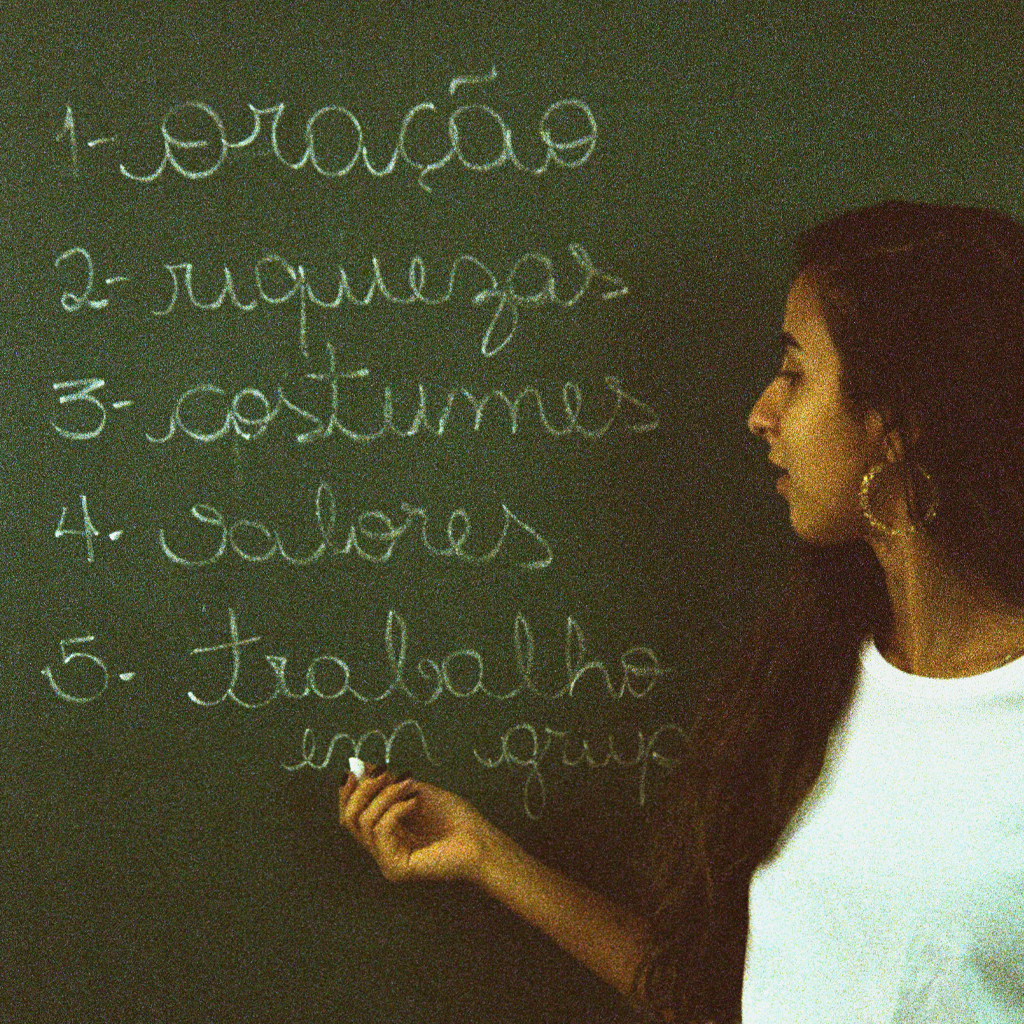 1- oração
2- riquezas
3- costumes
4- valores
5- trabalho
em grup